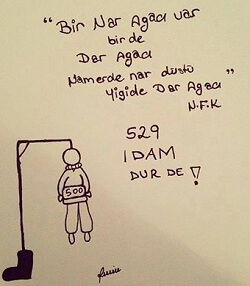 "Bir Nar Ağacı var
birde
Dar Ağacı
Namerde nar düştü
Yiğide Dar Ağacı"
N.F.K
529
IDAM
DUR DE!
500